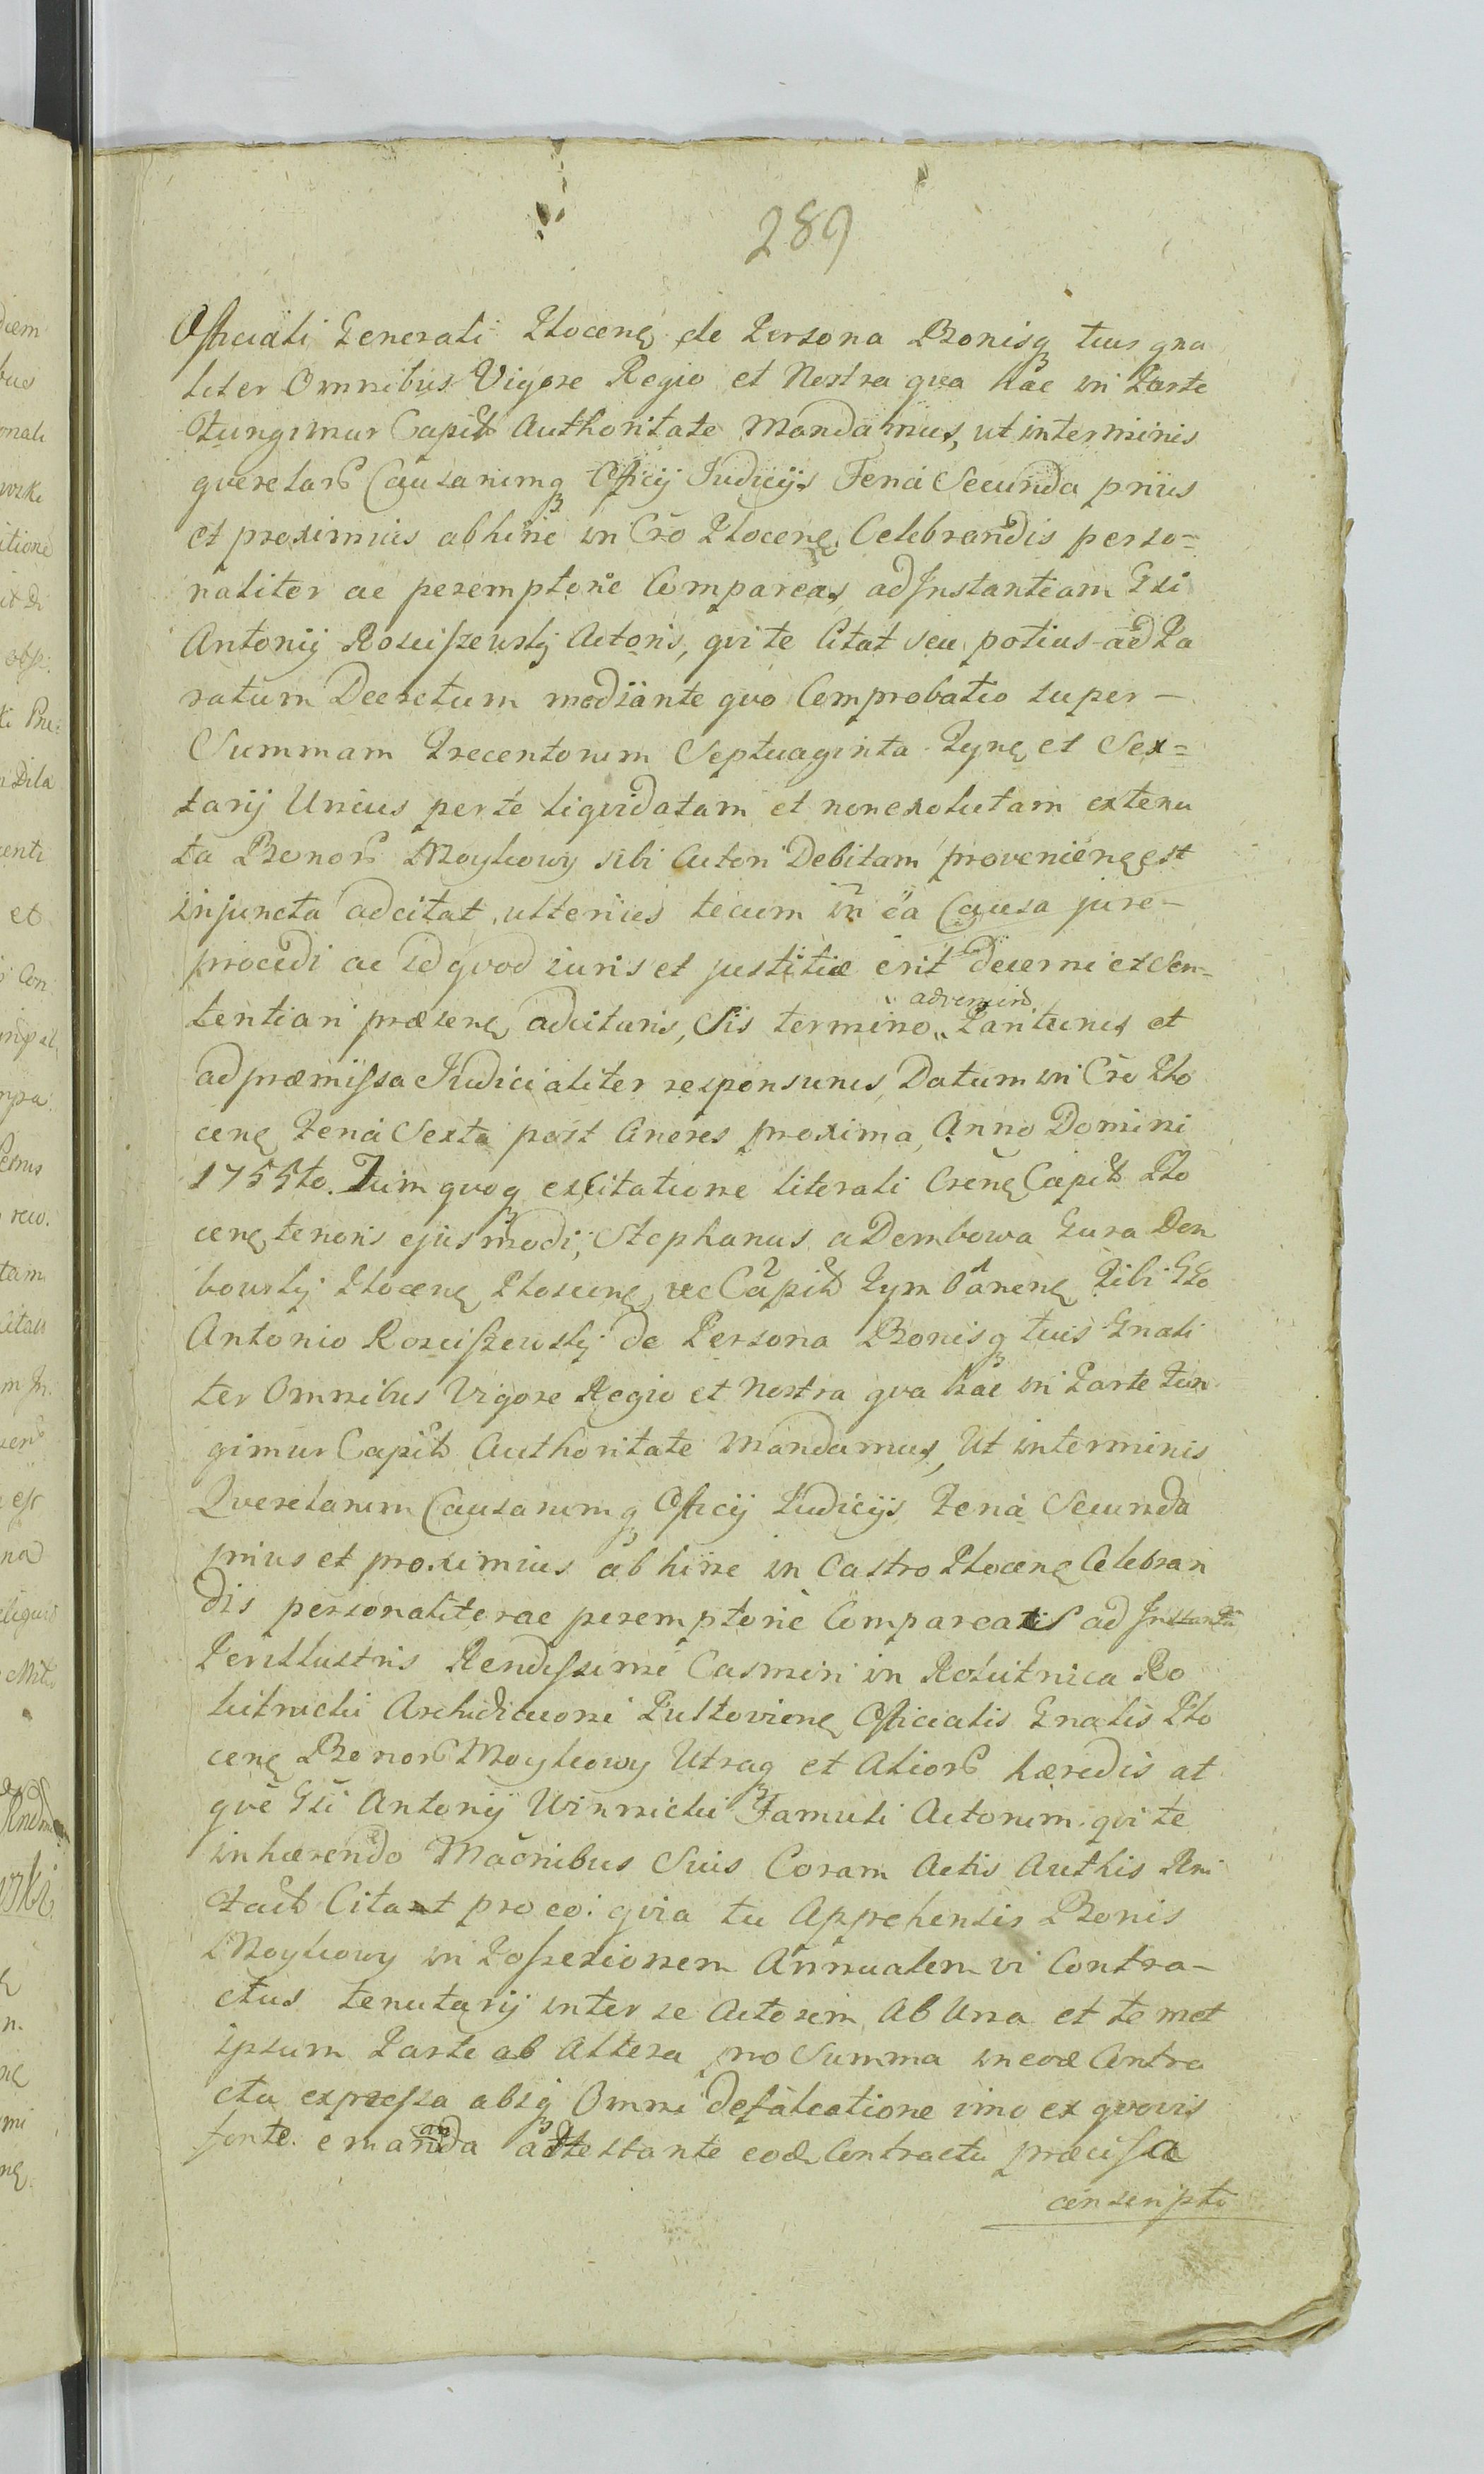 289
Officiali Generali Plocenę de Persona Bonisqз tuis gna
liter Omnibus Vigore Regio et Nostra qva hac in Parte
Fungimur Capit Authoritate Mandamus, ut in terminis
qverelarz Causarumqз Officij Judicijs Feria Secunda prius
et proximius abhinc in Cro Plocenę Celebrandis perso=
naliter ac peremptorie Compareas, ad Instantiam Gsi
Antonij Rosciszewskj Actoris, qvi te Citat seu potius ad Pa
ratum Decretum mediante qvo Comprobatio super –
Summam Trecentorum Septuaginta Tynf et Sex=
tarij Unius per te liqvidatam et non exolutam ex tenu
ta Bonorz Moykowy sibi Actori Debitam provenienę est
injuncta adcitat, ulterius tecum in ea Causa jure –
procedi ac id qvod iuris et justitiæ erit decerni et Sen=
tentiari præsenę adcitaris, Sis termino „ Pariturus et
adveniend
ad præmissa Judicialiter responsurus, Datum in Cro Plo
cenę Feria Sexta post Cineres proxima, Anno Domini
1755to. Tum qvoqз ex Citatione literali Crenę Capit Plo
cenę tenoris ejusmodi; Stephanus a Dembowa Gura Dem
bowskj Plocenę Ploscenę vec Capit Tymbarenę Tibi Gso
Antonio Rosciszewskj de Persona Bonisqз tuis Gnali
ter Omnibus Vigore Regio et Nostra qva hac in Parte Fun
gimur Capit Authoritate Mandamus, Ut in terminis
Qverelarum Causarumqз Officij Judicijs Feria Secunda
prius et proximius abhinc in Castro Plocenę Celebran
dis personaliter ac peremptorie Compareas ad Instantia
Perillustris Rendissimi Casimiri in Rokitnica Ro
kitnicki Archidiaconi Pultovienę Officialis Gnalis Plo
cenę Bonorz Moykowy Utraqз et Aliorz hæredis at
qve Gsi Antonij Winnicki Famuli Actorum qvi te
inhærendo Maonibus Suis Coram Actis Authis Rni
Citant pro eo: qvia tu Apprehensis Bonis
Moykowy in Possessionem Annualem vi Contra –
ctus tenutarij inter se Actorem, Ab Una et te met
ipsum Parte ab Altera pro Summa in eode Contra
ctu expressa absqз Omni defalcatione imo ex qvovis
fonte emananda adtestante eode Contractu præcisa
conscripto